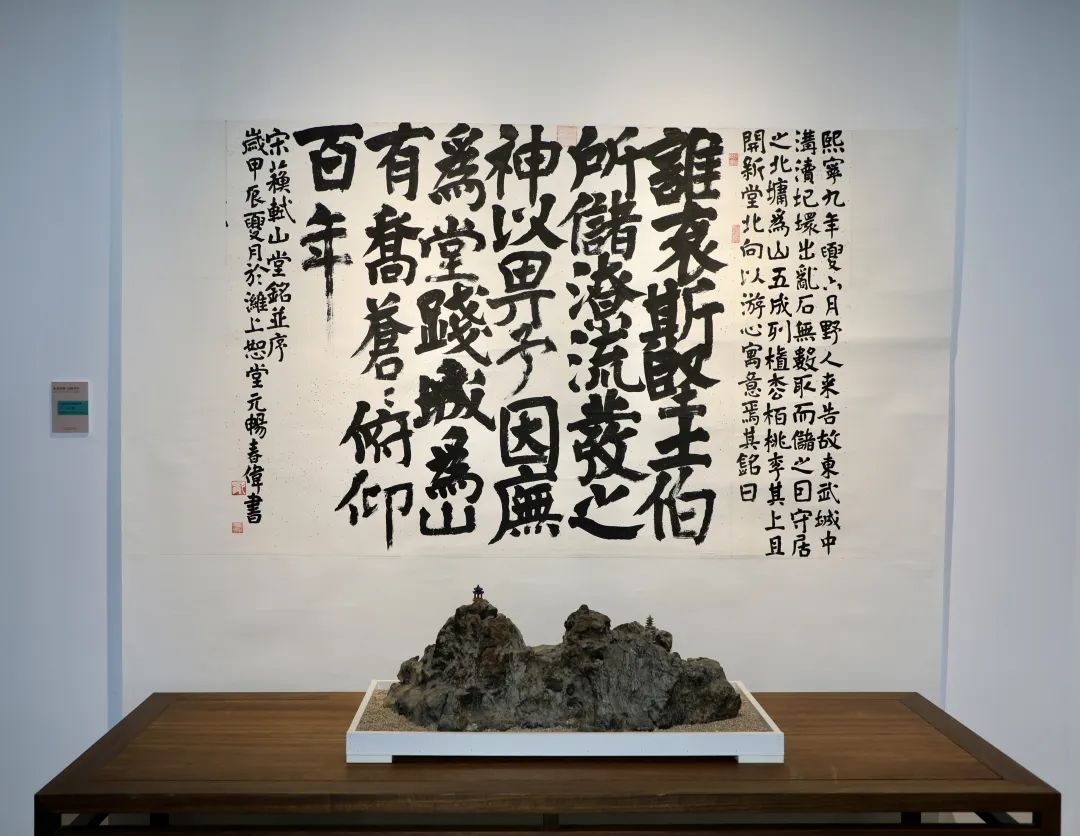 熙寧九年夏六月野人来告故東武城中
溝瀆圮壞出亂石無數取而儲之囙守居
之北墉為山五成列植枩柏桃李其上且
開新堂北向以游心寓意焉其銘曰
誰裒斯堅土伯
所儲潦流發之
神以畀予因廡
爲堂踐城爲山
有喬蒼〻俯仰
百年
宋蘓軾山堂銘並序
歲甲辰夏月於濰上恕堂元暢春偉書